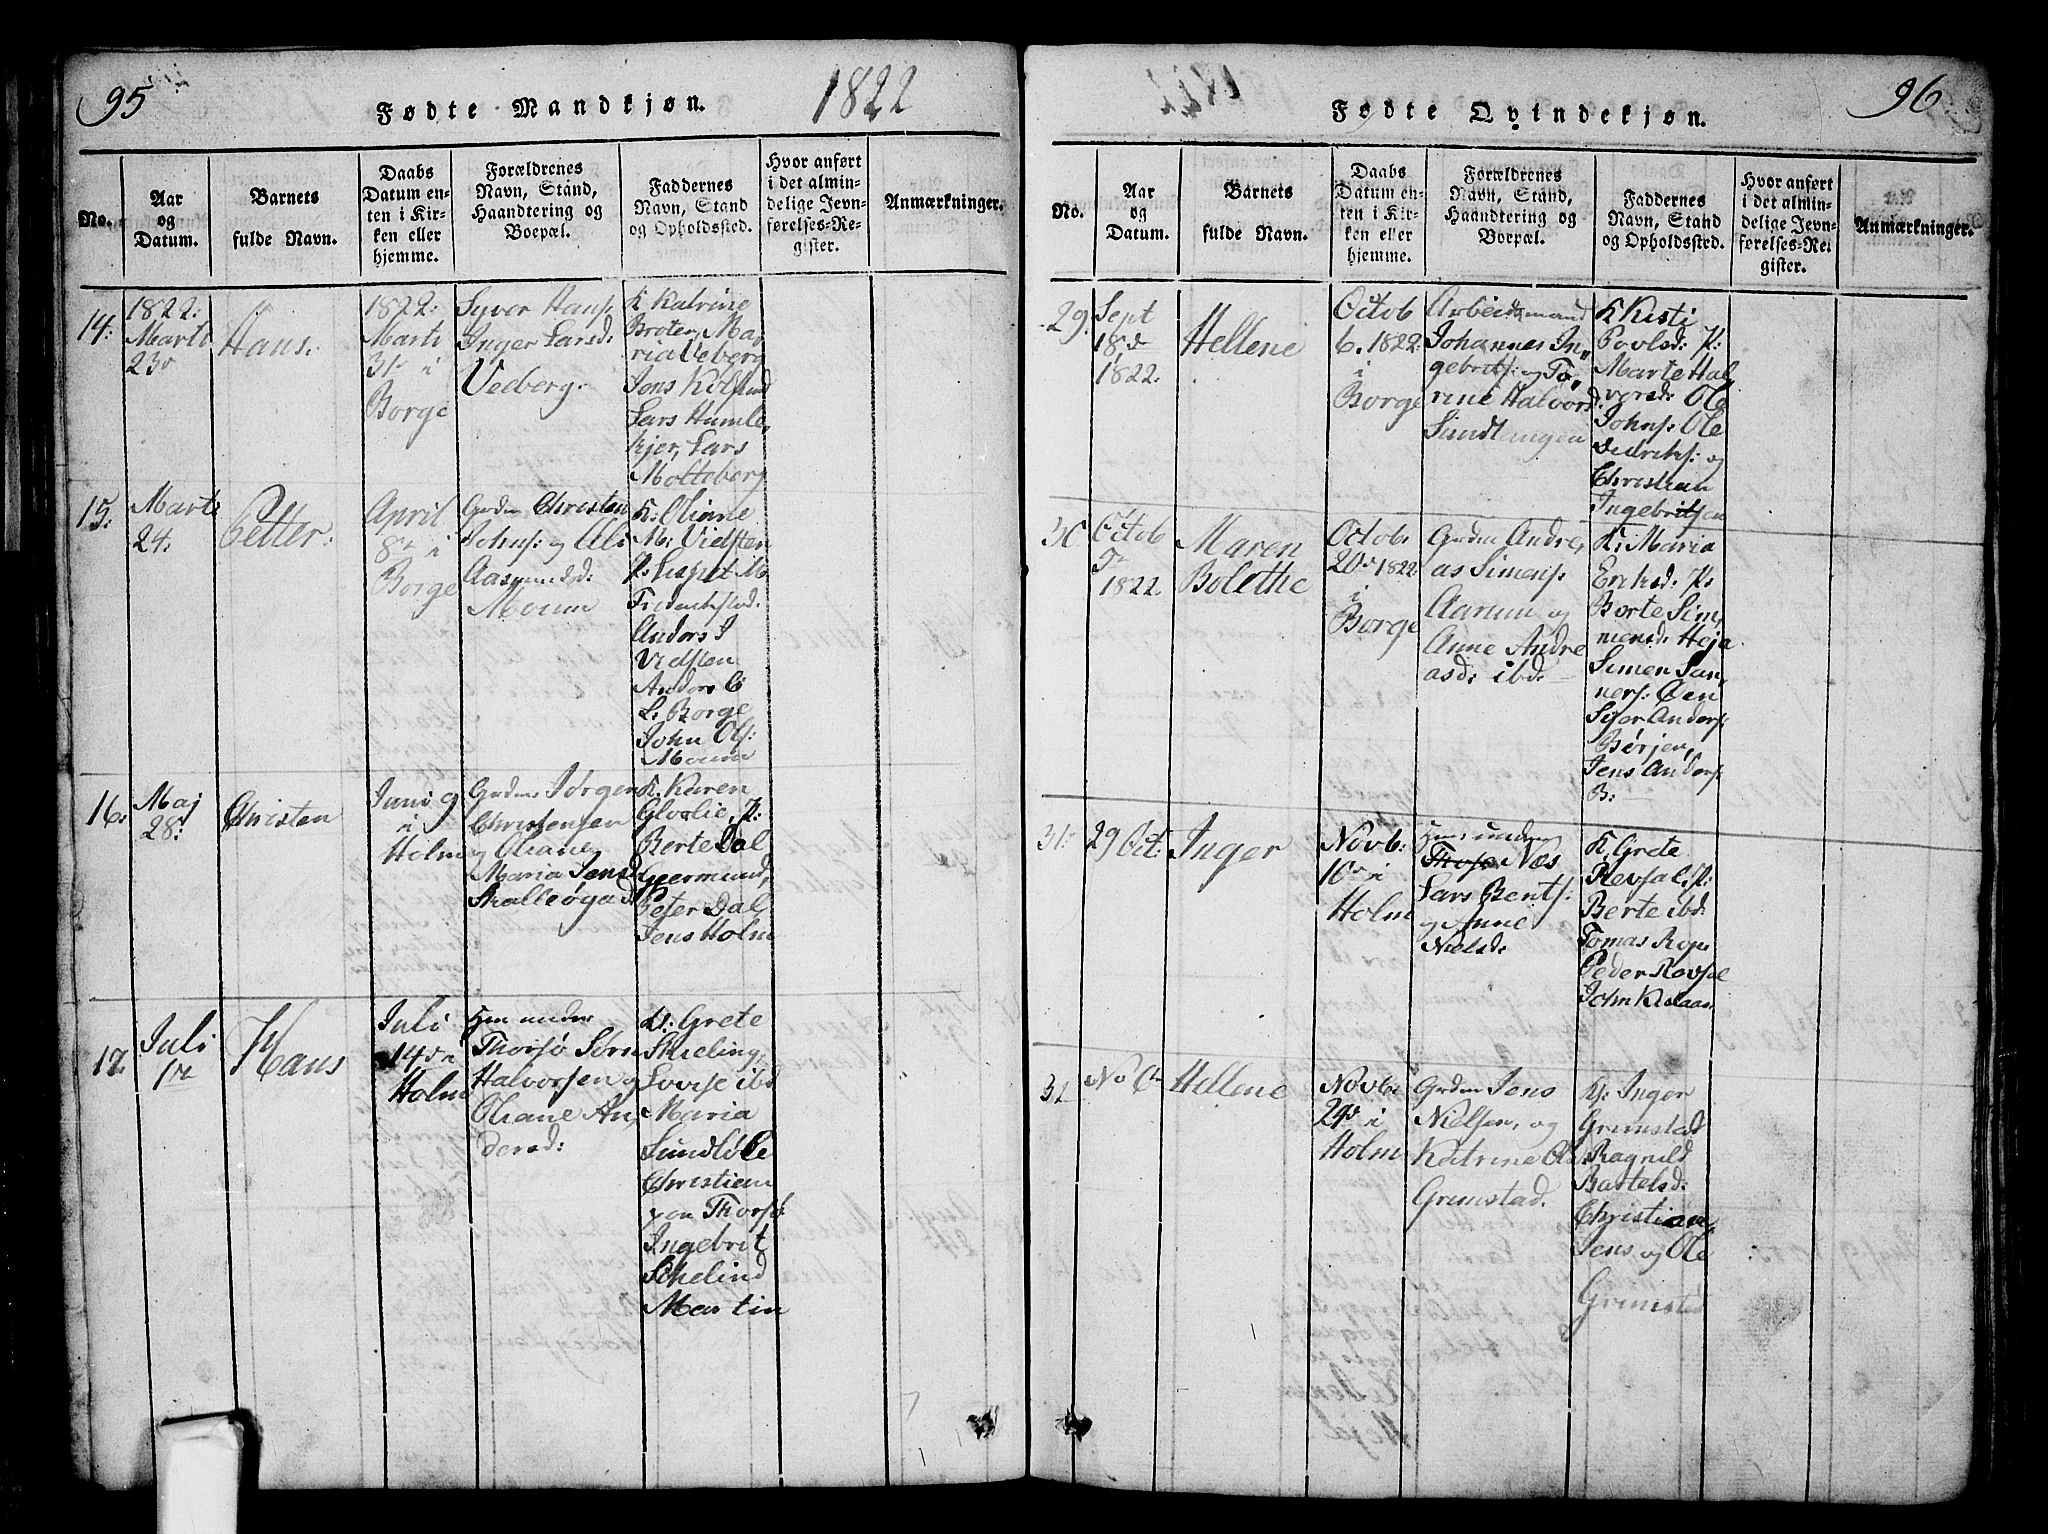 95
Fødte Mandkjøn.
1822
No.
Aar
og
Datum.
Barnets
fulde Navn.
Daabs
Datum en-
ten i Kir-
ken eller
hjemme.
Forældrenes
Navn, Stand,
Haandtering og
Boepæl.
Faddernes
Navn, Stand
og Opholdssted.
Hvor anført
i det almin-
delige Jevn-
førelses-Re-
gister.
Anmærkninger.
14:
1822:
Marti
23d
Hans.
1822:
Marti
31d i
Borge
Syver Hans:
Inger Larsd:
Vedberg.
K Katrine
Broten, Ma,
ria Veberg
Jens Kolstad
Lars Humle,
kjer, Lars
Molteberg
15:
Marti
24.
Petter:
April
8d i
Borge
Grdm Christen
Johns: og Ali
Aasmundsd:
Moum
K: Olinne
M: Vidsten
P: Lispet M
Frederikstad.
Anders I
Vidsten
Anders O
L: Borge
John Ols:
Moum
16.
Maj
28:
Christen
Juni 9
i
Holm
Grdm Jørgen
Christensen
og Oliane
Maria Jensd
Skalleøgad
K. Karen
Glorlie, P:
Berte Dal
Geermund,
Peter Dal
Jens Holm
17.
Juli
1d
Hans
Juli
14d i
Holm
Hm under
Thorsø Sørn
Halvorsen og
Oliane An,
dersd:
K: Grete
Skieling,
Lovise ibd
Maria
Sundløke
Christian
paa Thorsø
Ingebrit
Schelind
Martin
96
Fødte Qvindekjøn.
No.
Aar
og
Datum.
Barnets
fulde Navn.
Daabs
Datum en-
ten i Kir-
ken eller
hjemme.
Forældrenes
Navn, Stand,
Haandtering og
Boepæl.
Faddernes
Navn, Stand
og Opholdssted.
Hvor anført
i det almin-
delige Jevn-
førelses-Re-
gister.
Anmærkninger.
29.
Sept
18d
1822:
Hellene
Octob
6. 1822:
i
Borge
Arbeidsmand
Johannes In,
gebrits: og To,
rine Halvorsd:
Sundtangen
K Kisti
Povlsd: P:
Marte Hal
vorsd: Ole
Johns: Ole
Didriks: og
Christian
Ingebritsen
30
Octob
5d
1822.
Maren
Bolethe
Octob:
20d 1822
i
Borge
Grdm Andre,
as Simens:
Aarum og
Anne Andre
asd: ibd:
K: Maria
Eriksd: P:
Borte Sim,
mensd: Heja
Simen Sun,
ners: Øen
Sifer Anders:
Børjen,
Jens Anders:
B:
31:
29 Oct:
Inger
Novb:
10d i
Holm
Hm: under
Thorsø Næs
Lars Bents:
og Anne
Nielsd:
K, Grete
Revsal, P:
Berte ibd:
Tomas Rop,
Peder Rovsal
John Kislaas
32
Hellene
Novb:
24d i
Holm
Grdm Jens
Nielsen, og
Katrine Ols
Grimstad.
K: Inger
Grimstad
Ragnild
Bastelsd:
Christian,
Jens og Ole
Grimstad